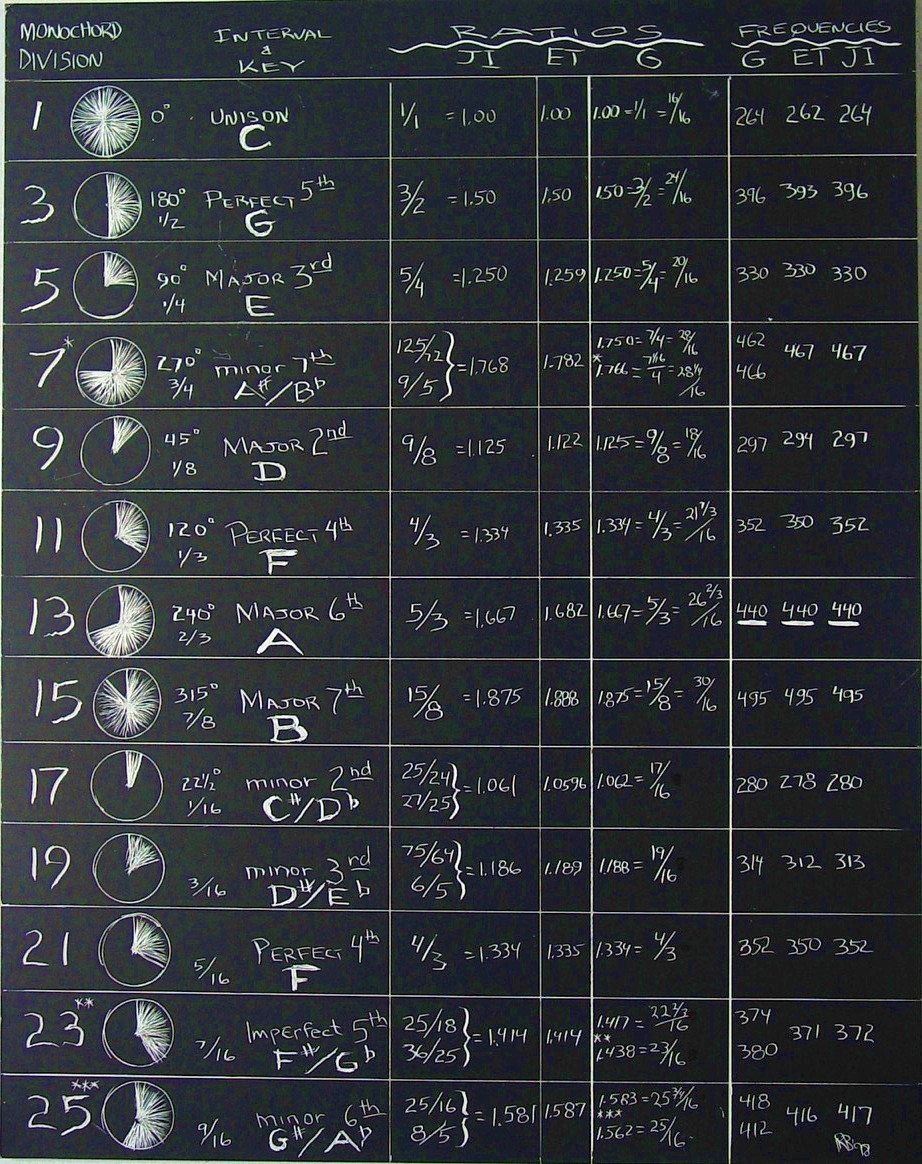 MONOCHORD DIVISION INTERVAL & KEY RATIOS FREQUENCIES
JI ET G G ET JI
1 0° UNISON C 1/1 =1.00 1.00 1.00=1/1=16/16 264 262 264
3 180° 1/2 PERFECT 5th G 3/2 =1.50 1.50 1.50=3/2=24/16 396 393 396
5 90° 1/4 MAJOR 3rd E 5/4 =1.250 1.259 1.250=5/4=20/16 330 330 330
7* 270° 3/4 minor 7th A#/Bb 125/72 9/5 } =1.768 1.782 1.750=7/4=28/16 462 467 467
*1.766=7 1/16/4=28 1/4/16 466
9 45° 1/8 MAJOR 2nd D 9/8 =1.125 1.122 1.125=9/8=18/16 297 294 297
11 120° 1/3 PERFECT 4th F 4/3 =1.334 1.335 1.334=4/3=21 1/3/16 352 350 352
13 240° 2/3 MAJOR 6th A 5/3 =1.667 1.682 1.667=5/3=26 2/3/16 440 440 440
15 315° 7/8 MAJOR 7th B 15/8 =1.875 1.888 1.875=15/8=30/16 495 495 495
17 22½° 1/16 minor 2nd C#/Db 25/24 27/25 } =1.061 1.0596 1.062=17/16 280 278 280
19 3/16 minor 3rd D#/Eb 75/64 6/5 } =1.186 1.189 1.188=19/16 314 312 313
21 5/16 PERFECT 4th F 4/3 =1.334 1.335 1.334=4/3 352 350 352
23** 7/16 Imperfect 5th F#/Gb 25/18 36/25 } =1.414 1.414 1.417=22 2/3/16 374 371 372
**1.438=23/16 380
25*** 9/16 minor 6th G#/Ab 25/16 8/5 } =1.581 1.587 1.583=25 3/4/16 418 416 417
***1.562=25/16 412